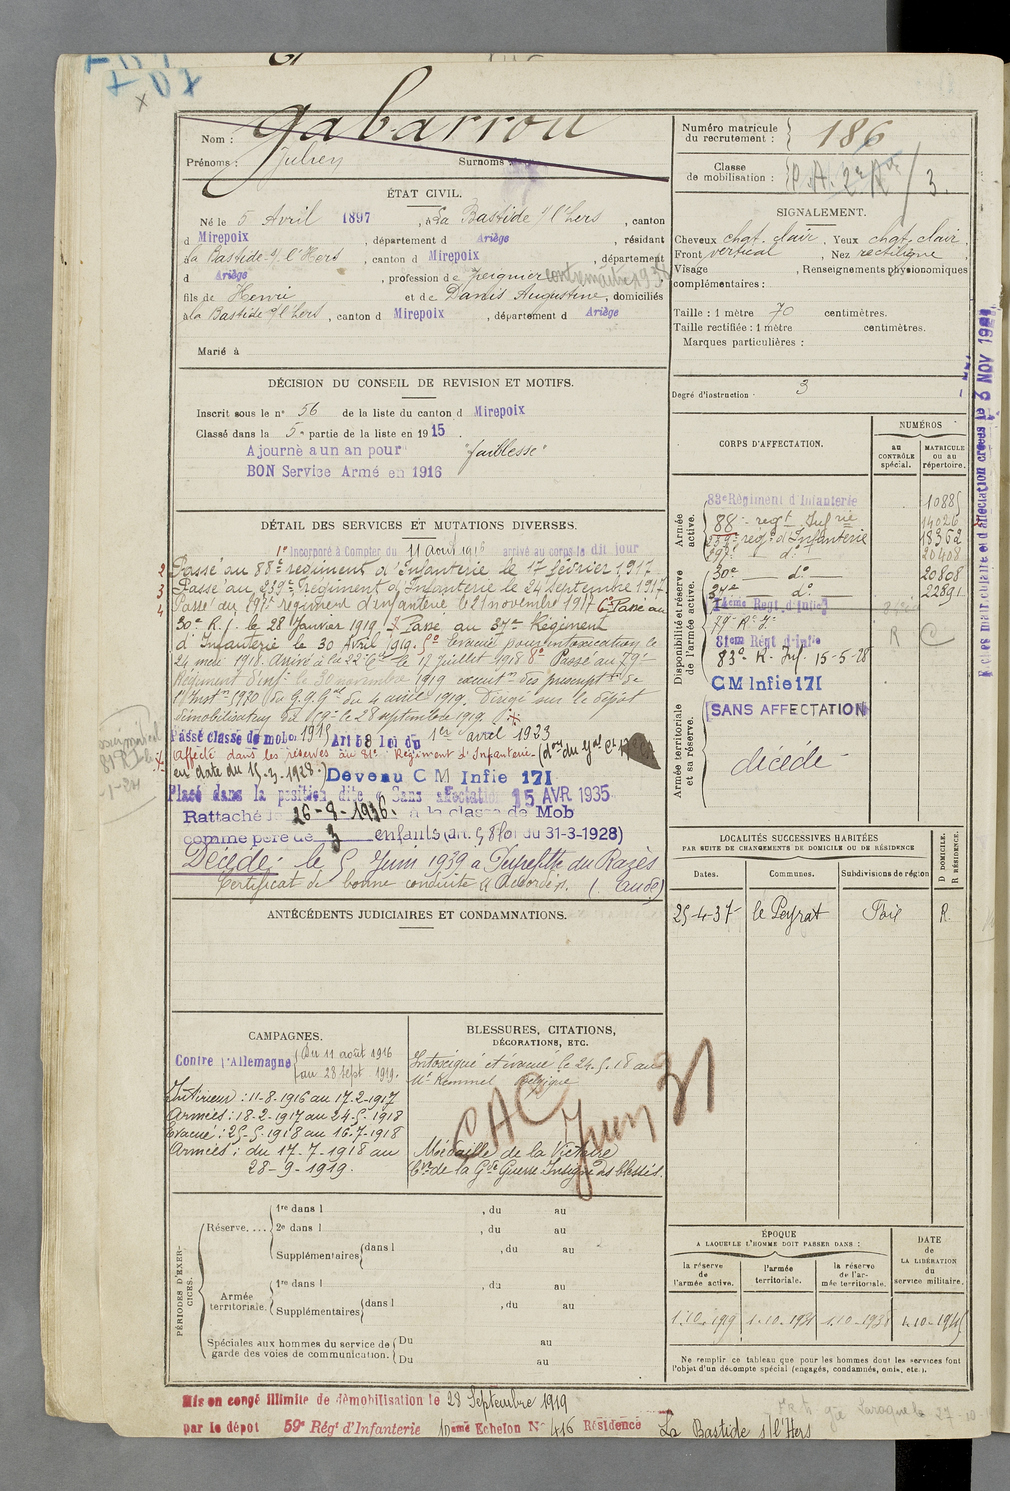 Nom : Gabarrou
Prénoms : Julien Surnoms :
ÉTAT CIVIL.
Né le 5 Avril 1897, à La Bastide s/ l'Hers, canton
d Mirepoix, département d Ariège, résidant
à La Bastide s/ l'Hers, canton d Mirepoix, département
d Ariège, profession de peignier contremaître 193
fils de Henri et de Danis Augustine, domiciliés
à La Bastide s/ l'Hers, canton d Mirepoix, département d Ariège
Marié à
DÉCISION DU CONSEIL DE REVISION ET MOTIFS.
Inscrit sous le n° 56 de la liste du canton d Mirepoix
Classé dans la 5e partie de la liste en 1915.
Ajourné a un an pour "faiblesse"
BON Service Armé en 1916
DÉTAIL DES SERVICES ET MUTATIONS DIVERSES.
1° Incorporé à Compter du 11 août 1916 arrivé au corps le dit jour
2 Passé au 88e régiment d'Infanterie le 17 février 1917
3 Passé au 259e régiment d'Infanterie le 24 septembre 1917
4 Passé au 297e régiment d'infanterie le 21 novembre 1917 6° Passé au
30e R.I. le 28 Janvier 1919 7° Passé au 37e Régiment
d'Infanterie le 30 Avril 1919. 5° Evacué pour intoxication le
24 mai 1918. Arrivé à la 22e Cie le 17 juillet 1918 8° Passé au 79e
Régiment d'Inf. le 30 novembre 1919 du G.Q.G. du 4 avril 1919. Dirigé sur le dépôt
démobilisateur le 28 septembre 1919.
Passé classe de mob. 1915 Art 58 Loi du 1er avril 1923
Affecté dans les réserves au 81e Régiment d'Infanterie
en date du 15-3-1928.) Devenu C M Infie 171
Placé dans la position dite « Sans affectation 15 AVR 1935
Rattaché le 26-8-1936. à la classe de Mob
comme père de 3 enfants (art. 58 loi du 31-3-1928)
Décédé : le 5 Juin 1939 à Peyrefitte du Razès
Certificat de bonne conduite "Accordé". (Aude)
ANTÉCÉDENTS JUDICIAIRES ET CONDAMNATIONS.
CAMPAGNES.
Contre l'Allemagne Du 11 août 1916
au 28 Sept 1919.
Intérieur : 11-8-1916 au 17-2-1917
Armées : 18-2-1917 au 24-5-1918
Evacué : 25-5-1918 au 16-7-1918
Armées : du 17-7-1918 au
28-9-1919.
BLESSURES, CITATIONS,
DÉCORATIONS, ETC.
Intoxiqué et évacué le 24.5.18 au
Mt Kemmel Belgique
CAC Juin 31
Médaille de la Victoire
Cve de la Gde Guerre Insigne des blessés.
PÉRIODES D'EXERCICES.
Réserve....
1re dans l , du au
2e dans l , du au
Supplémentaires dans l , du au
Armée territoriale.
1re dans l , du au
Supplémentaires dans l , du au
Spéciales aux hommes du service de garde des voies de communication.
Du au
Du au
Numéro matricule du recrutement : 186
Classe de mobilisation :
SIGNALEMENT.
Cheveux chat. clair. Yeux chat. clair,
Front vertical, Nez rectiligne
Visage , Renseignements physionomiques
complémentaires :
Taille : 1 mètre 70 centimètres.
Taille rectifiée : 1 mètre centimètres.
Marques particulières :
Degré d'instruction 3
CORPS D'AFFECTATION.
NUMÉROS
AU CONTRÔLE spécial.
MATRICULE OU AU répertoire.
Armée active.
83e Régiment d'Infanterie 10885
88e regt Infrie 14026
259e regt d'Infanterie 18362
297e do 20408
Disponibilité et réserve de l'armée active.
30e do 20808
37e do 22891
14eme Régt. d'Infie
79e R.I.
81eme Régt d'infie
83e R. Inf. 15-5-28
C M Infie 171
SANS AFFECTATION
Armée territoriale et sa réserve.
décédé
LOCALITÉS SUCCESSIVES HABITÉES
PAR SUITE DE CHANGEMENTS DE DOMICILE OU DE RÉSIDENCE
Dates. Communes. Subdivisions de région D DOMICILE. R RÉSIDENCE.
25-4-37 le Peyrat Foix R.
ÉPOQUE
A LAQUELLE L'HOMME DOIT PASSER DANS :
la réserve de l'armée active.
l'armée territoriale.
la réserve de l'armée territoriale.
DATE de LA LIBÉRATION du service militaire.
Ne remplir ce tableau que pour les hommes dont les services font
l'objet d'un décompte spécial (engagés, condamnés, omis, etc.).
Mis en congé illimité de démobilisation le 28 Septembre 1919
par le dépôt 59e Régt d'Infanterie 10eme Echelon N° 416 Résidence La Bastide s/ l'Hers